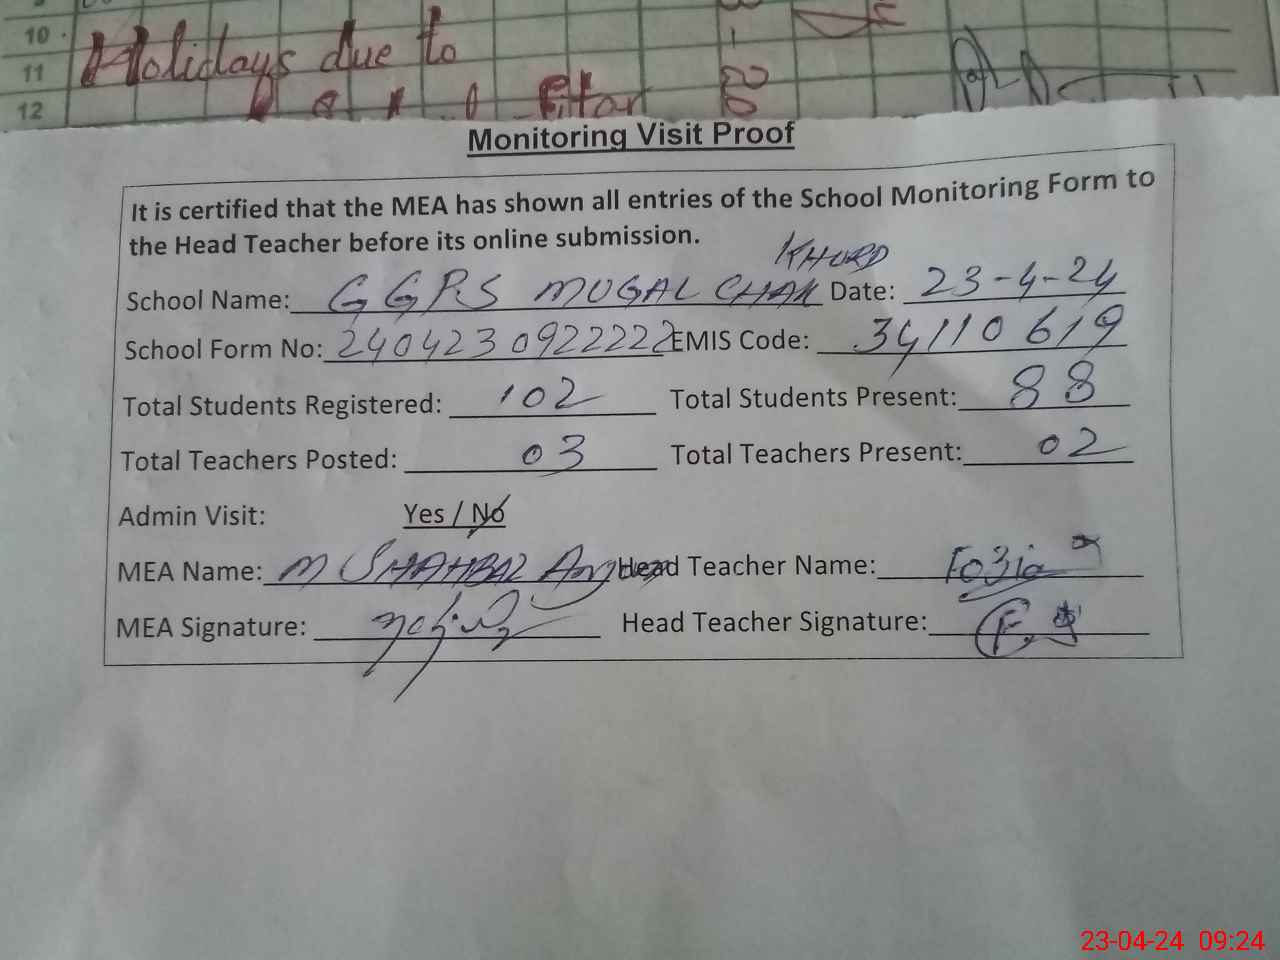 10
11
12
Holidays due to
Monitoring Visit Proof
It is certified that the MEA has shown all entries of the School Monitoring Form to
the Head Teacher before its online submission.
KHURD
School Name: GGPS MUGAL CHAK Date: 23-4-24
School Form No: 240423092222 EMIS Code: 34110619
Total Students Registered: 102 Total Students Present: 88
Total Teachers Posted: 03 Total Teachers Present: 02
Admin Visit: Yes / No
MEA Name: M SHAHBAZ Head Teacher Name: Fozia
MEA Signature: Head Teacher Signature:
23-04-24 09:24